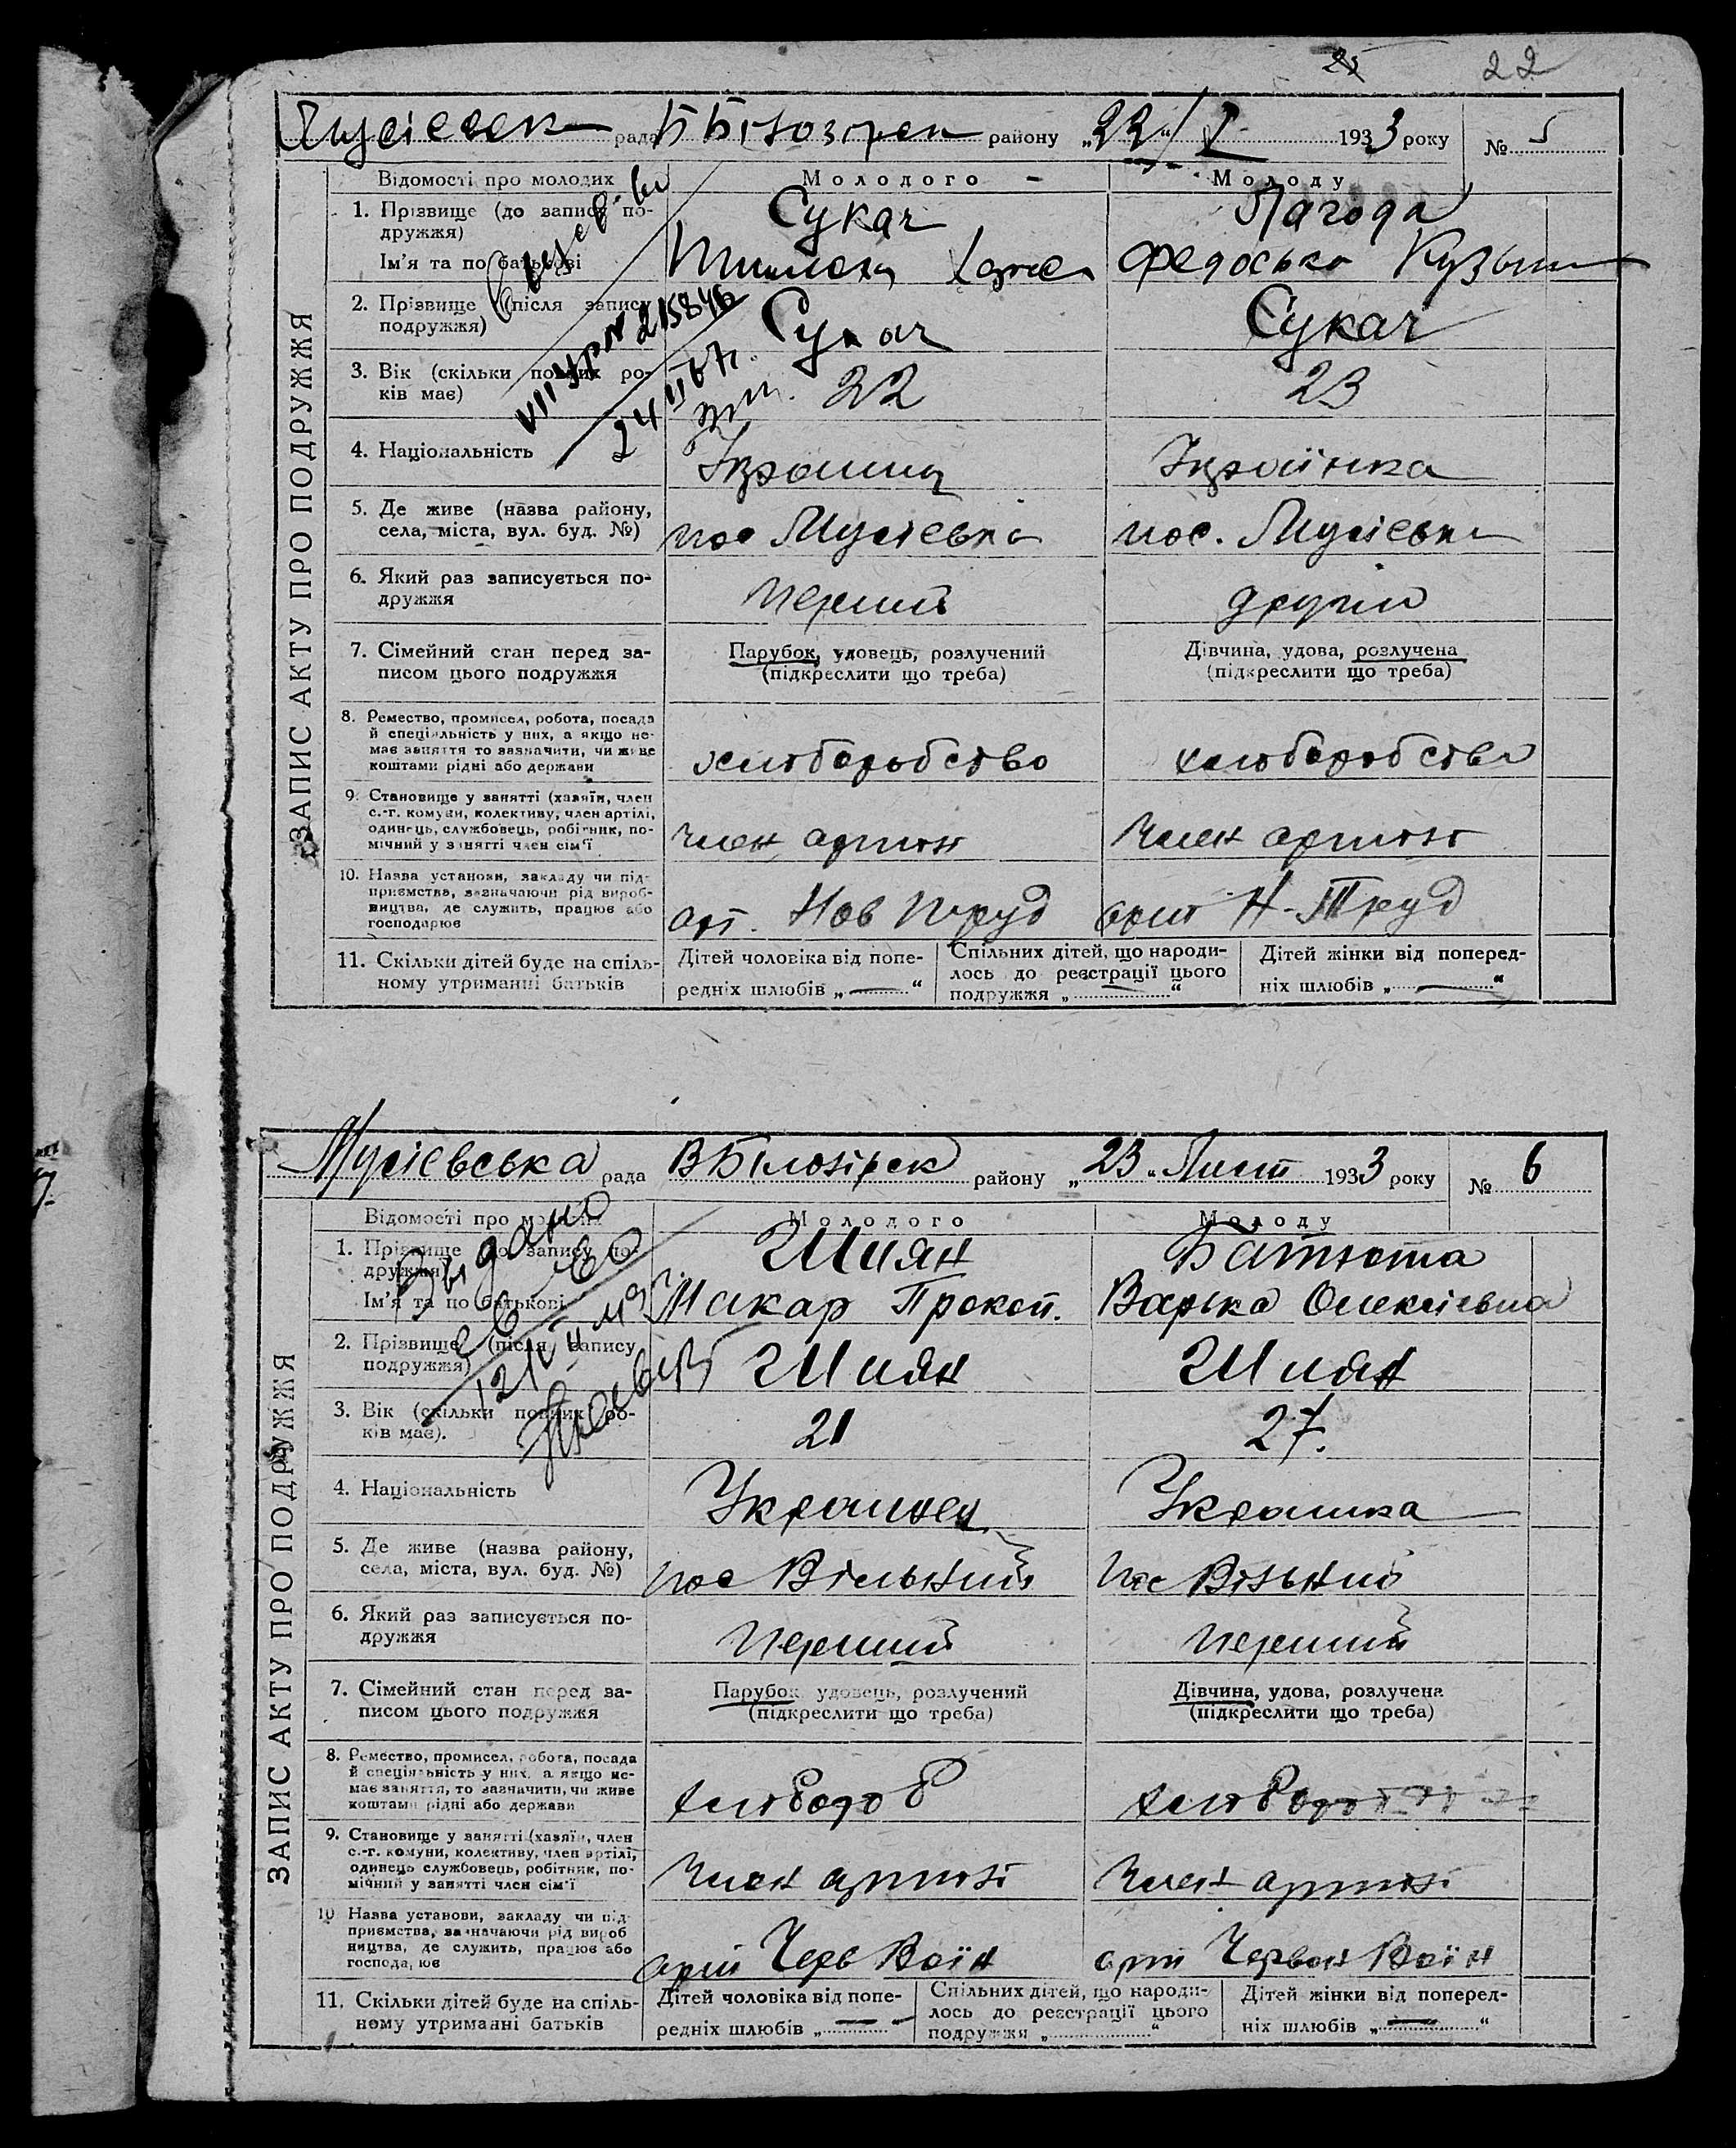 22
Мусієвськ рада В Білозірськ району „22“/I 1933 року № 5
ЗАПИС АКТУ ПРО ПОДРУЖЖЯ
Відомості про молодих Молодого Молоду
1. Прізвище (до запису по-
дружжя) Сукач Лагода
Ім'я та по батькові Федоська Кузьм
2. Прізвище (після запису
подружжя) Сукач Сукач
VII УР № 215846
3. Вік (скільки повних ро-
ків має) 22 23
4. Національність Українец Українка
5. Де живе (назва району,
села, міста, вул. буд. №) пос Мусієвка пос. Мусієвка
6. Який раз записується по-
дружжя перший другий
7. Сімейний стан перед за-
писом цього подружжя
Парубок, удовець, розлучений
(підкреслити що треба)
Дівчина, удова, розлучена
(підкреслити що треба)
8. Ремество, промисел, робота, посада
й спеціяльність у них, а якщо не-
має заняття то зазначити, чи живе
коштами рідні або держави
хліборобство хліборобство
9. Становище у занятті (хазяїн, член
с.-г. комуни, колективу, член артілі,
одинець, службовець, робітник, по-
мічний у занятті член сім'ї
член артілі член артілі
10. Назва установи, закладу чи під-
приємства, зазначаючи рід вироб-
ництва, де служить, працює або
господарює
арт. Нов Труд арт Н-Труд
11. Скільки дітей буде на спіль-
ному утриманні батьків
Дітей чоловіка від попе-
редніх шлюбів „—“
Спільних дітей, що народи-
лось до реєстрації цього
подружжя „—“
Дітей жінки від поперед-
ніх шлюбів „—“
Мусієвська рада В Білозірск району „23“ Лист 1933 року № 6
ЗАПИС АКТУ ПРО ПОДРУЖЖЯ
Відомості про молодих Молодого Молоду
Выдано
1. Прізвище (до запису по-
дружжя) Шиян Батюта
Ім'я та по батькові Макар Прокоп. Варька Олексієвна
2. Прізвище (після запису
подружжя) Шиян Шиян
3. Вік (скільки повних ро-
ків має). 21 27.
4. Національність Украинец Украинка
5. Де живе (назва району,
села, міста, вул. буд. №) пос Вільний пос Вільний
6. Який раз записується по-
дружжя перший перший
7. Сімейний стан перед за-
писом цього подружжя
Парубок, удовець, розлучений
(підкреслити що треба)
Дівчина, удова, розлучена
(підкреслити що треба)
8. Ремество, промисел, робота, посада
й спеціяльність у них, а якщо не-
має заняття, то зазначити, чи живе
коштами рідні або держави
хлібороб хлібороб
9. Становище у занятті (хазяїн, член
с.-г. комуни, колективу, член артілі,
одинець службовець, робітник, по-
мічний у занятті член сім'ї
член артілі член артілі
10 Назва установи, закладу чи під-
приємства, зазначаючи рід вироб
ництва, де служить, працює або
господарює
арт Черв Воїн арт Червон Воїн
11. Скільки дітей буде на спіль-
ному утриманні батьків
Дітей чоловіка від попе-
редніх шлюбів „—
Спільних дітей, що народи-
лось до реєстрації цього
подружжя „ “
Дітей жінки від поперед-
ніх шлюбів „—“